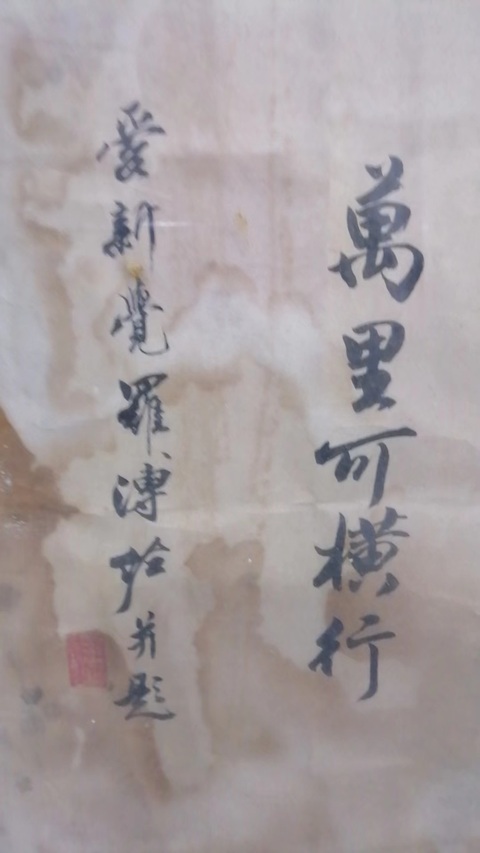 萬里可横行
愛新覺羅溥 并題